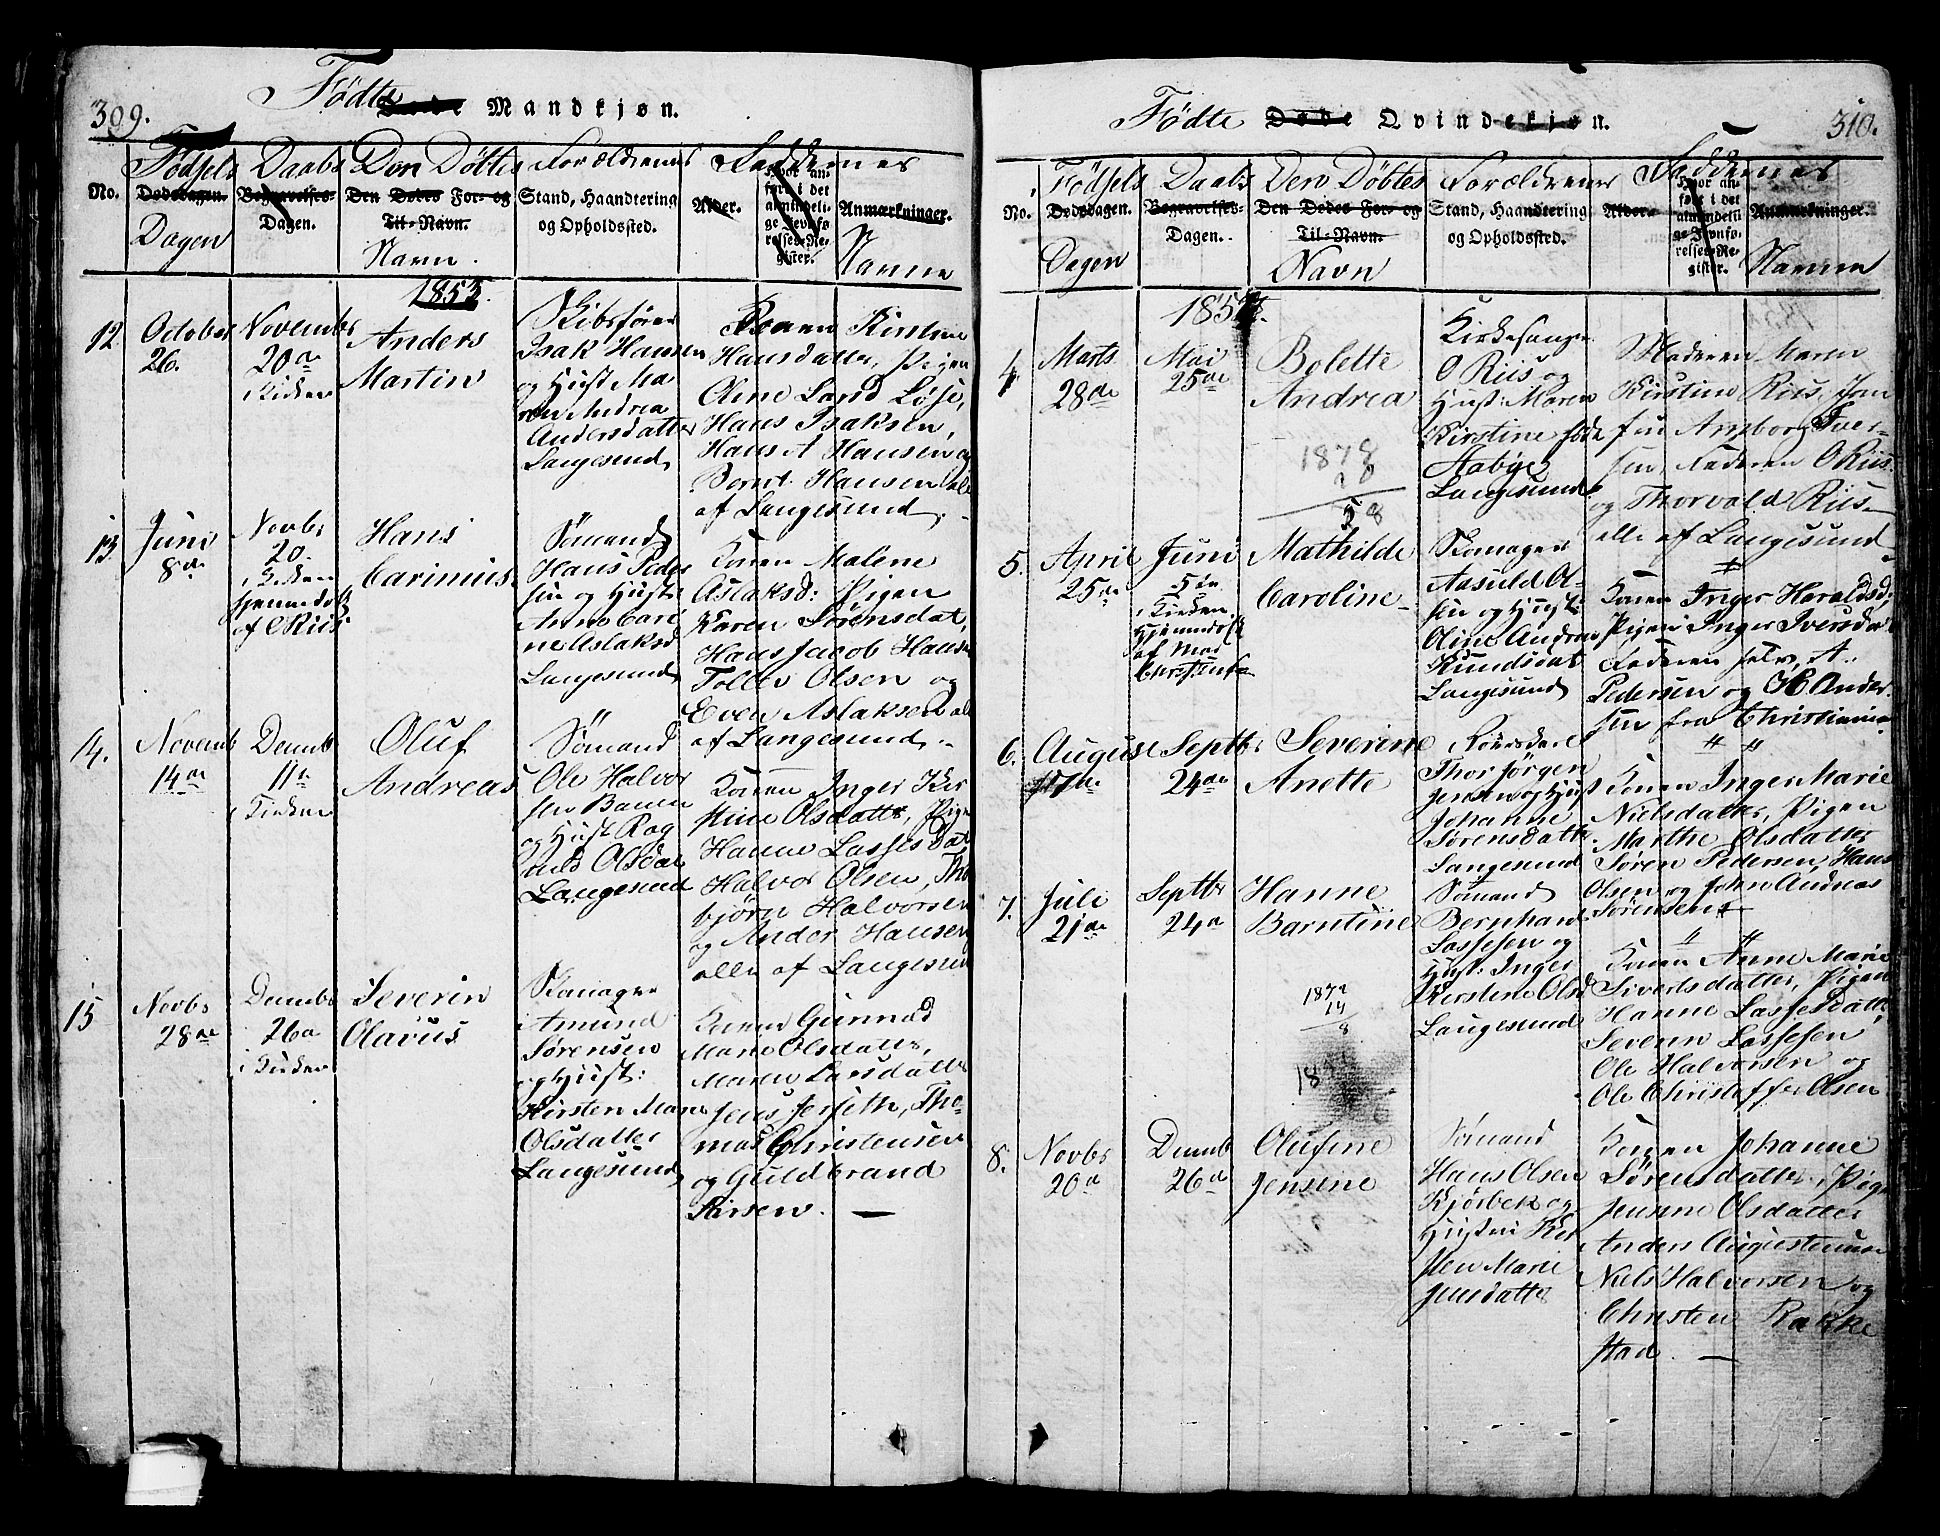 309.
Födte Døde Mandkjøn.
No.
Födsels Dødsdagen. Dagen
Daabs Begravelses- Dagen.
Den Döbtes Den Dødes For- og Til-Navn. Navn.
Forældrenes Stand, Haandtering og Opholdssted.
Alder.
Hvor anført i det almindelige Jevnførelses-Register.
Anmærkninger.
Faddernes Navne
1853.
12
October
26.
Novembr
20de
i Kirken
Anders
Martin
Skibsfører
Isak Hansen
og Hust Ma-
ren Andrea
Andersdatter
Langesund
Konen Kirstine
Hansdatter, Pigen
Oline Land Löse,
Hans Isaksen,
Hans A Hansen og
Bernt Hansen alle
af Langesund.
13
Juni
8de
Novbr
20.
i Kirken
hjemmedöbt
af O Riis
Hans
Carinius
Sömand
Hans Peder
sen og Hust
Anne Cari
ne Aslaksd
Langesund
Konen Malene
Aslaksd: Pigen
Karen Sörensdat,
Hans Jacob Hansen
Tollev Olsen og
Even Aslaksen alle
af Langesund.
14.
Novemb
14de
Decemb
11te
i Kirken
Oluf
Andreas
Sömand
Ole Halvor
sen
og Hust Rag
nild Olsdat
Langesund
Konen Inger Kir
stine Olsdatter, Pigen
Hanne Lasses Dat
Halvor Olsen, Thor
björn Halvorsen
og Anders Hansen
alle af Langesund
15
Novbr
28de
Decembr
26de
i Kirken
Severin
Olavus
Skomager
Amund
Sörensen
og Hust:
Kirsten Marie
Olsdatter
Langesund
Konen Gunnild
Marie Olsdatter,
Maren Larsdatter
Jens Jerseth, Tho-
mas Christensen
og Guldbrand
Sirsen. —
310.
Födte Døde Qvindekjøn.
No.
Födsels Dødsdagen. Dagen
Daabs Begravelses- Dagen.
Den Döbtes Den Dødes For- og Til-Navn. Navn
Forældrenes Stand, Haandtering og Opholdssted.
Alder.
Hvor anført i det almindelige Jevnførelses-Register.
Anmærkninger.
Faddernes Navne
4
Marts
28de
Mai
25de
Bolette
Andrea
1878
28
58
Kirkesanger
O Riis og
Hust: Maren
Kirstine föde
Aabye
Langesund
Moderen Maren
Kirstine Riis, Jom
fru Amborg Iver-
sen, Faderen O Riis
og Thorvald Riis
alle af Langesund
5.
April
25de
Juni
5te
i Kirken
hjemmedöbt
af Mad
Christensen
Mathilde
Caroline
Skomager
Aasuld Ol-
sen og Hust:
Oline Andrea
Knudsdat
Langesund
Konen Inger Haraldsd,
Pigen Inger Iversdat
Faderen selv, A.
Pedersen og H. Ander-
sen fra Christiania
6.
August
17de
Septbr
24de
Severine
Anette
Thor Jörgen
Jensen og Hust
Johanne
Sörensdatter
Langesund
Konen Inger Marie
Nielsdatter, Pigen
Marthe Olsdatter
Sören Pedersen, Hans
Olsen og John Andreas
Sörensen
7.
Juli
21de
Septbr
24de
Hanne
Barntine
Sömand
Bernhard
Lassesen og
Hust: Inger
Kirstine Olsd
Langesund
Konen Anne Marie
Sivertsdatter, Pigen
Hanne Lassesdatter
Severin Lassesen
Ole Halvorsen og
Ole Christoffer Olsen
8.
Novbr
20de
Decemb
26de
Olufine
Jensine
Sömand
Hans Olsen
Kjörbek og
Hustru Kir
sten Marie
Jensdatter
Konen Johanne
Sörensdatter, Pigen
Jensine Olsdatter
Anders Augustinusen
Niels Halvorsen og
Christen Rakke
stad. —